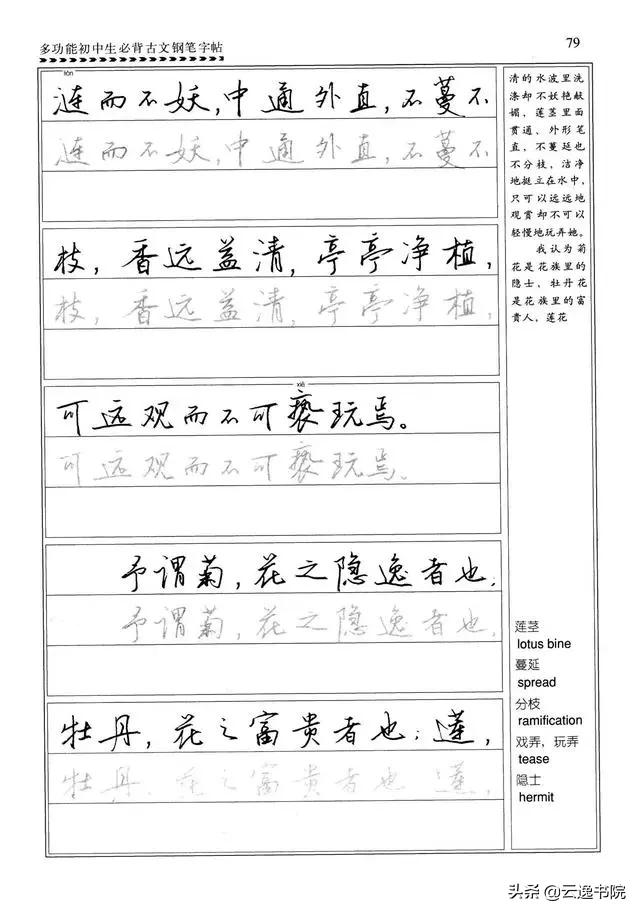 多功能初中生必背古文钢笔字帖
79
lián
涟而不妖，中通外直，不蔓不
涟而不妖，中通外直，不蔓不
枝，香远益清，亭亭净植，
枝，香远益清，亭亭净植，
xiè
可远观而不可亵玩焉。
可远观而不可亵玩焉。
予谓菊，花之隐逸者也；
予谓菊，花之隐逸者也；
牡丹，花之富贵者也；莲，
牡丹，花之富贵者也；莲，
清的水波里洗
涤却不妖艳献
媚，莲茎里面
贯通、外形笔
直，不蔓延也
不分枝，洁净
地挺立在水中，
只可以远远地
观赏却不可以
轻慢地玩弄她。
我认为菊
花是花族里的
隐士，牡丹花
是花族里的富
贵人，莲花
莲茎
lotus bine
蔓延
spread
分枝
ramification
戏弄，玩弄
tease
隐士
hermit
头条@云逸书院